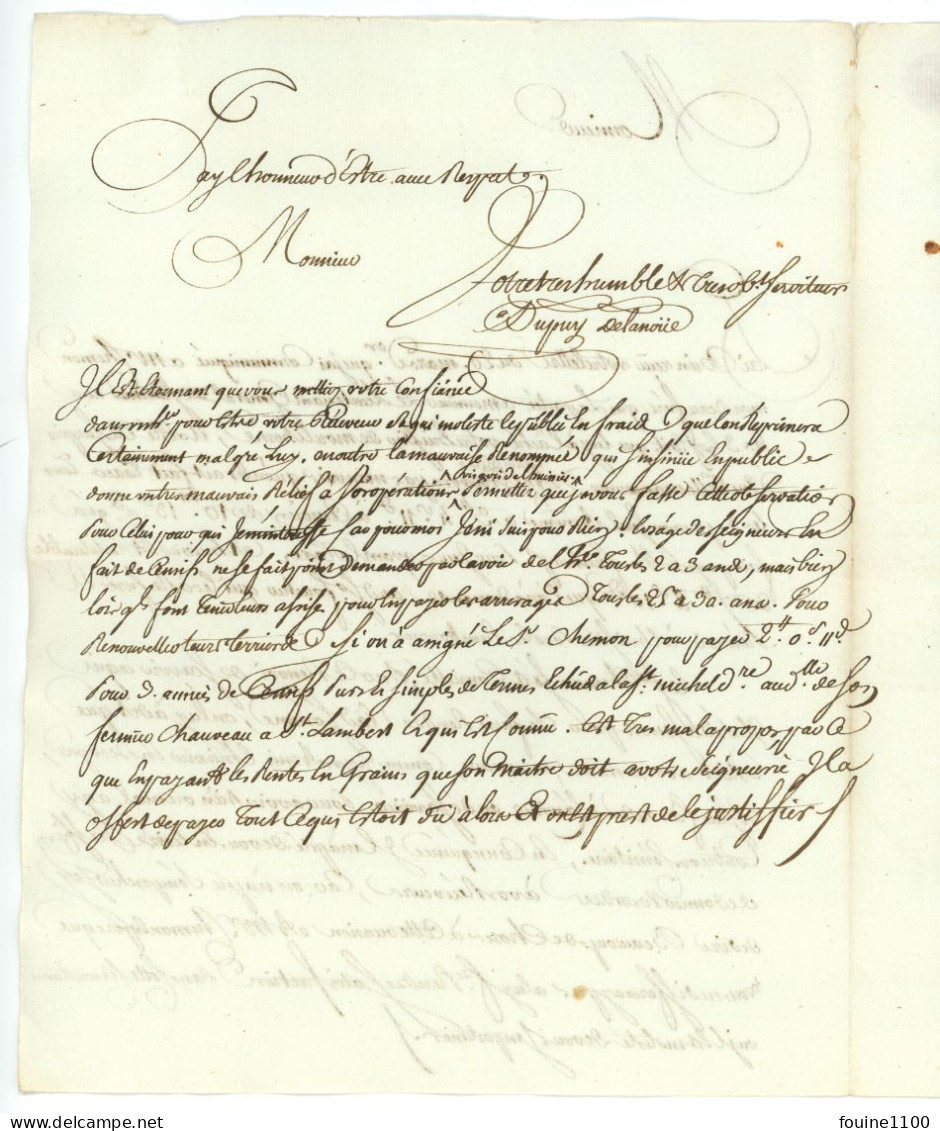 J'ay l'honneur d'Estre avec Respect
Monsieur
Votre tres humble & Tres obt. serviteur
Dupuy Delanoüe
Il Est Etonnant que vous mettiez votre Confiance
pour Estre votre Receveur Et qui moleste le public En fraid que lon Reprimera
Certainement malgré Luy, en outre la mauvaise Renommée qui s'insinüe En public
donne un tres mauvais Relief à ses opérations permettez que je vous fasse cette observation
Pour Celui pour qui Car pour moi Je n'i suis pour Rien. l'usage des seigneurs En
fait de Censifs ne se fait point demander par la voie de tous les 2 a 3 ans, mais bien
lors qls. font Tenir leurs assise pour En payer les arrerages Tous les 25 a 30. ans. Pour
Renouveller leurs Terriers Si on à assigné Le Sr. Chemon pour payer 2tt 0s 11d
Pour 3. années de Censif Purs Et simples de Termes Echüs a la St. michel dre. au dlle de Son
fermier Chauveau a St. Lambert Ce qui Est Connu. C'est Tres mal apropos par Ce
que En payant les Rentes En Grains que Son Maitre doit a votre Seigneurie Il a
offert de payer Tout Ce qui Etoit du àlors Et on Est prest de le justiffier
fouine1100